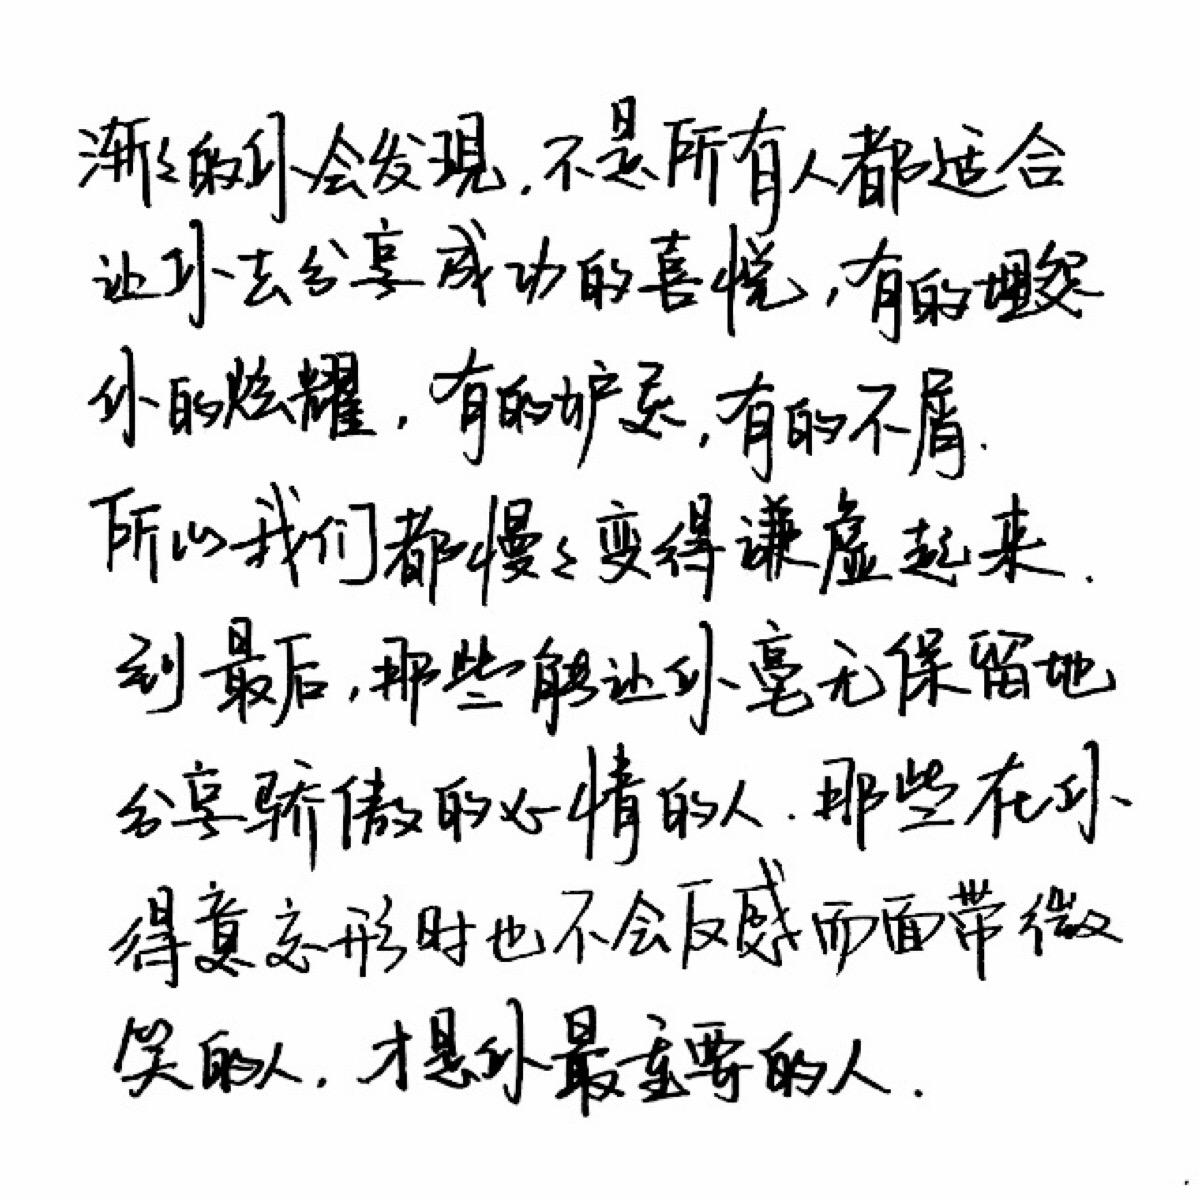 渐渐的你会发现，不是所有人都适合
让你去分享成功的喜悦，有的埋怨
你的炫耀，有的妒忌，有的不屑.
所以我们都慢慢变得谦虚起来.
到最后，那些能让你毫无保留地
分享骄傲的心情的人.那些在你
得意忘形时也不会反感而面带微
笑的人.才是你最重要的人.